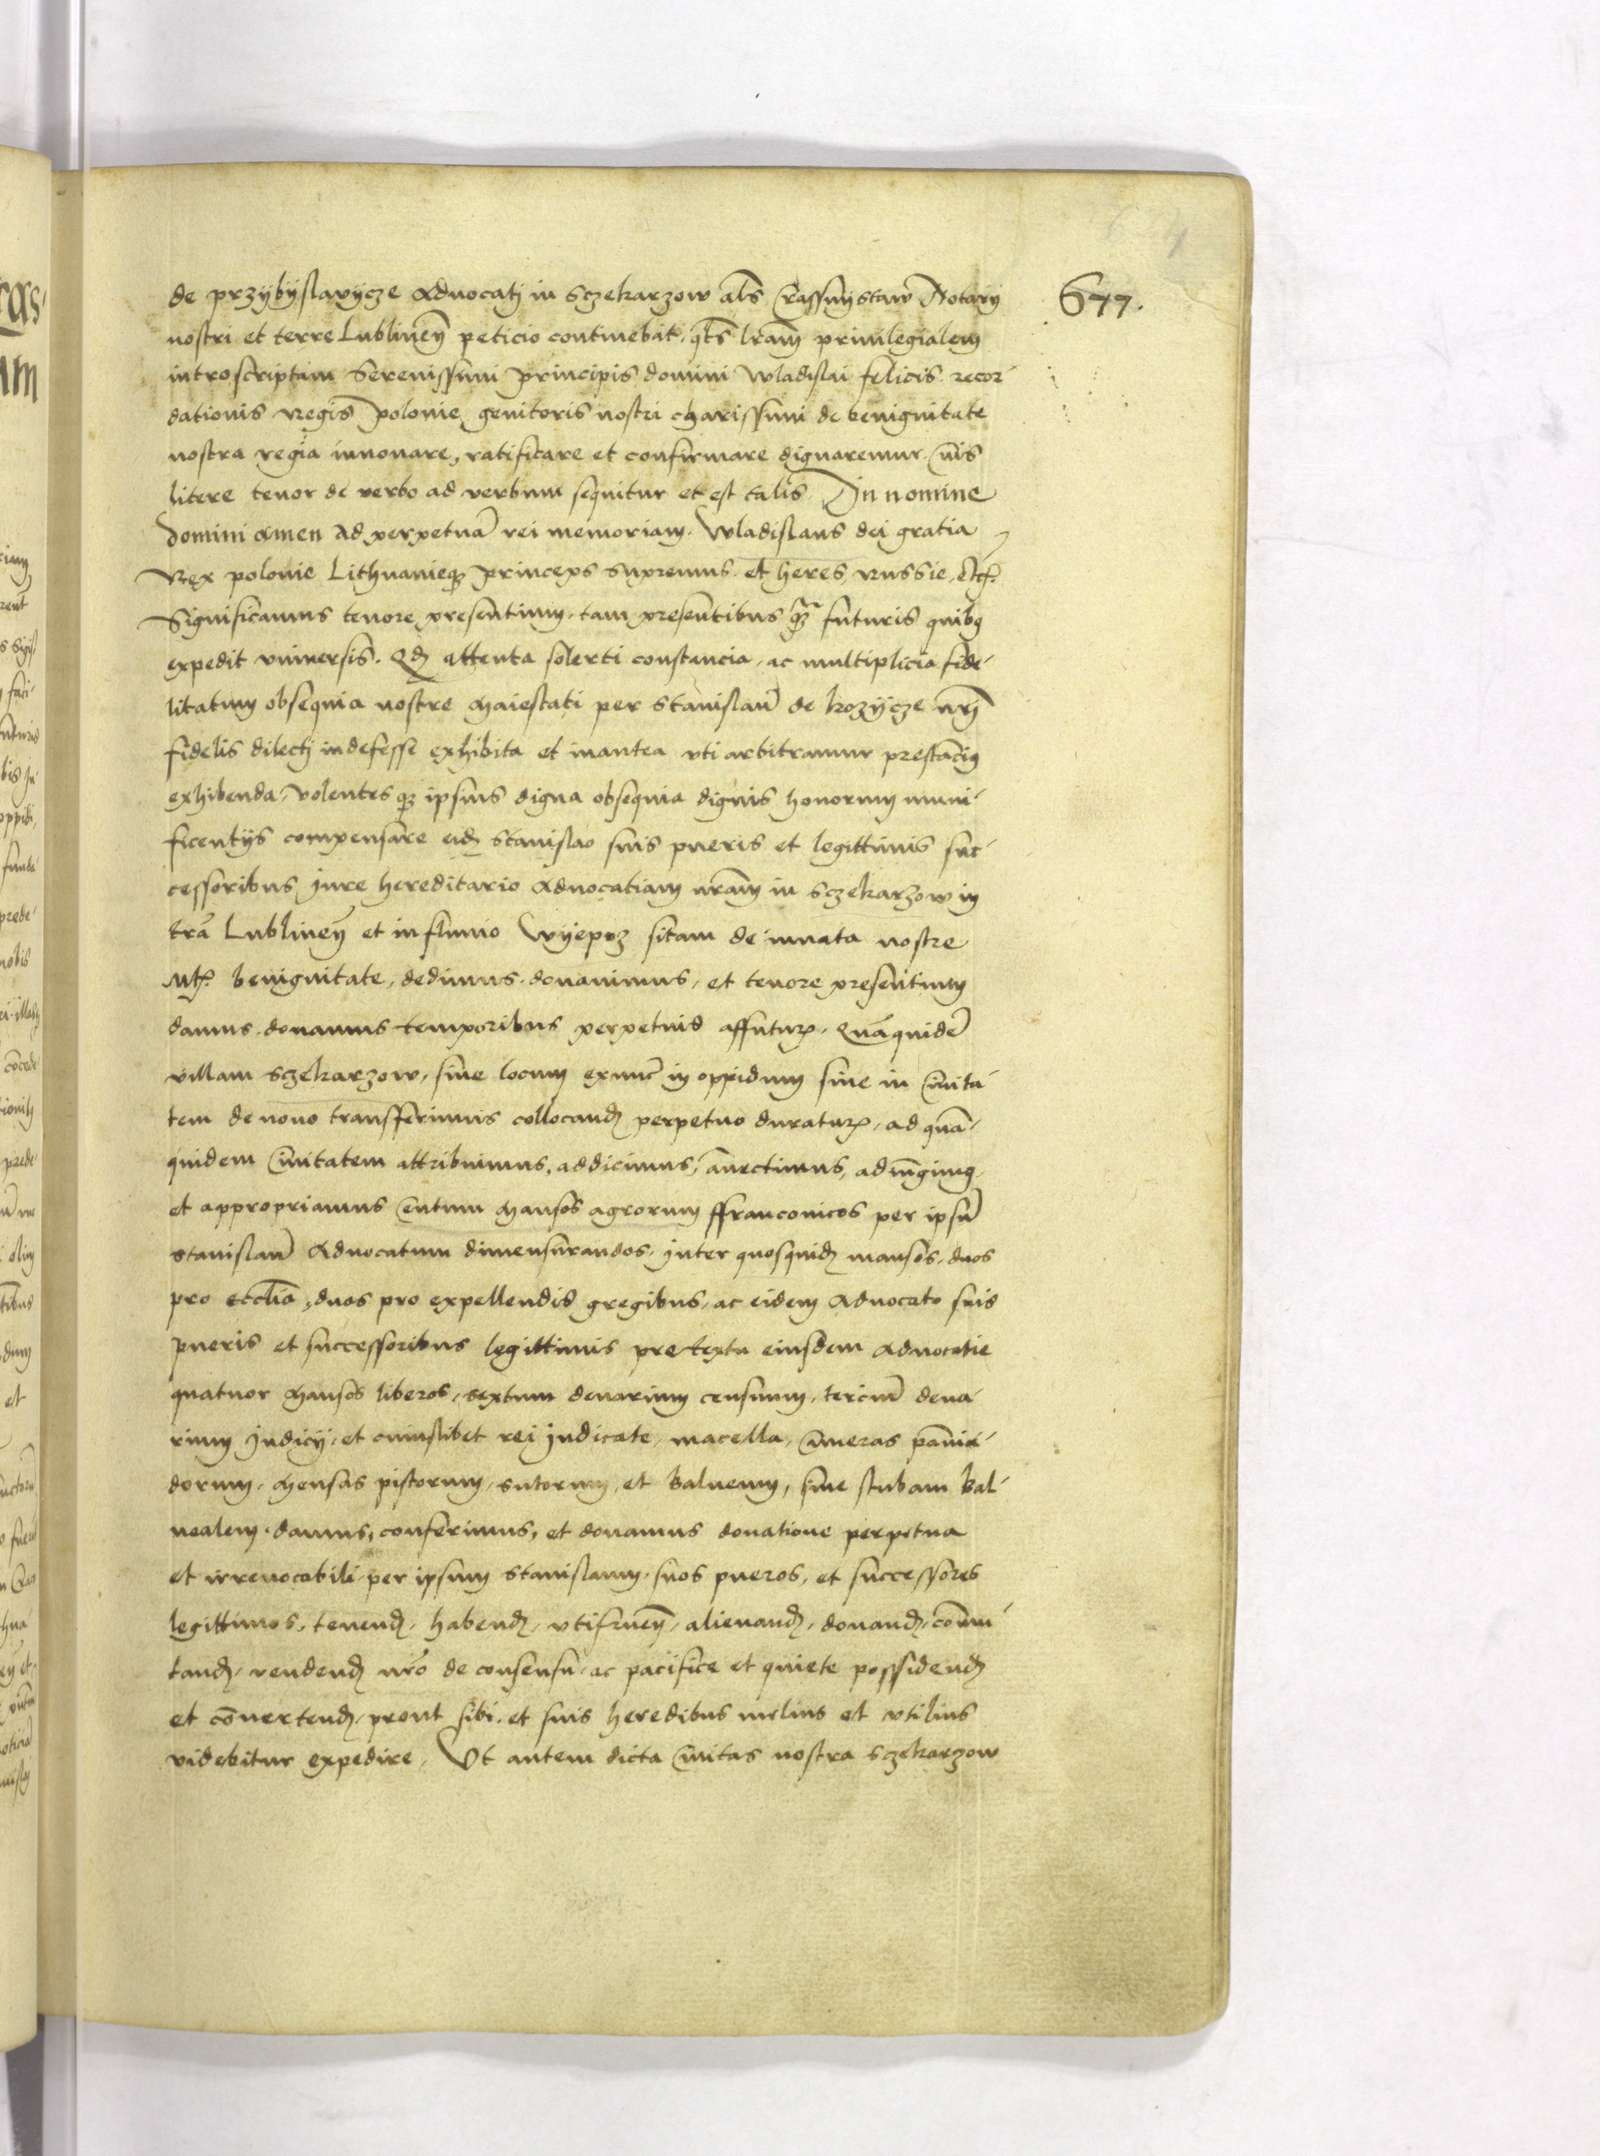 677.
de przybyslavycze Advocatj in Sczekarzow als Crassnystaw Notarij
nostri et terre Lublineñ peticio continebat, qts lrãm privilegialem
introscriptam Serenissimi principis domini Wladislai felicis recor-
dationis Regis polonie genitoris nostri charissimi de benignitate
nostra regia innovare, ratificare et confirmare dignaremur. Cuis
litere tenor de verbo ad verbum sequitur et est talis. In nomine
domini amen Ad perpetuã rei memoriam. Wladislaus dei gratia
Rex polonie Lithuanieq princeps supremus et heres russie etc.
Significamus tenore presentium, tam presentibus q̃ futuris quibq
expedit universis. Qd attenta solerti constancia, ac multiplicia fide-
litatum obsequia nostre Maiestati per Stanislaũ de kozycze nrm̃
fidelis dilectj indefesse exhibita et inantea uti arbitramur prestãciq
exhibenda, volentes q ipsius digna obsequia dignis honorum muni-
ficentijs compensare eid Stanislao suis pueris et legittimis suc-
cessoribus Jure hereditario Advocatiam nrãm in Sczekarzow in
trã Lublineñ et in fluvio Wyeprz sitam de innata nostre
Mtis benignitate, dedimus donavimus, et tenore presentium
damus donamus temporibus perpetuis affutur. Quã quidẽ
villam Sczekarzow, sive locum exnunc in oppidum sive in Civita-
tem de novo transferimus collocand perpetuo duratur, ad quã-
quidem Civitatem attribuimus, addicimus, ãnectimus, adiũgimq
et appropriamus Centum Mansos agrorum ffranconicos per ipsũ
Stanislaũ Advocatum dimensurandos, Inter quosquid mansos, duos
pro ecclia, duos pro expellendis gregibus, ac eidem Advocato suis
pueris et successoribus legittimis pretextu eiusdem Advocatie
quatuor Mansos liberos, sextum denarium censuum, terciũ dena-
rium Judicij, et cuiuslibet rei Judicate, macella, Cameras pãnici-
dorum, Mensas pistorum, sutorum, et balneum, sive stubam bal-
nealem, damus, conferimus, et donamus donatione perpetua
et irrevocabili per ipsum Stanislaum, suos pueros, et successores
legittimos, tenend, habend, utifrueñ, alienand, donand, cõmu-
tand, vendend nrõ de consensu, ac pacifice et quiete possidend
et cõnvertend, prout sibi et suis heredibus melius et utilius
videbitur expedire. Ut autem dicta Civitas nostra Sczekarzow